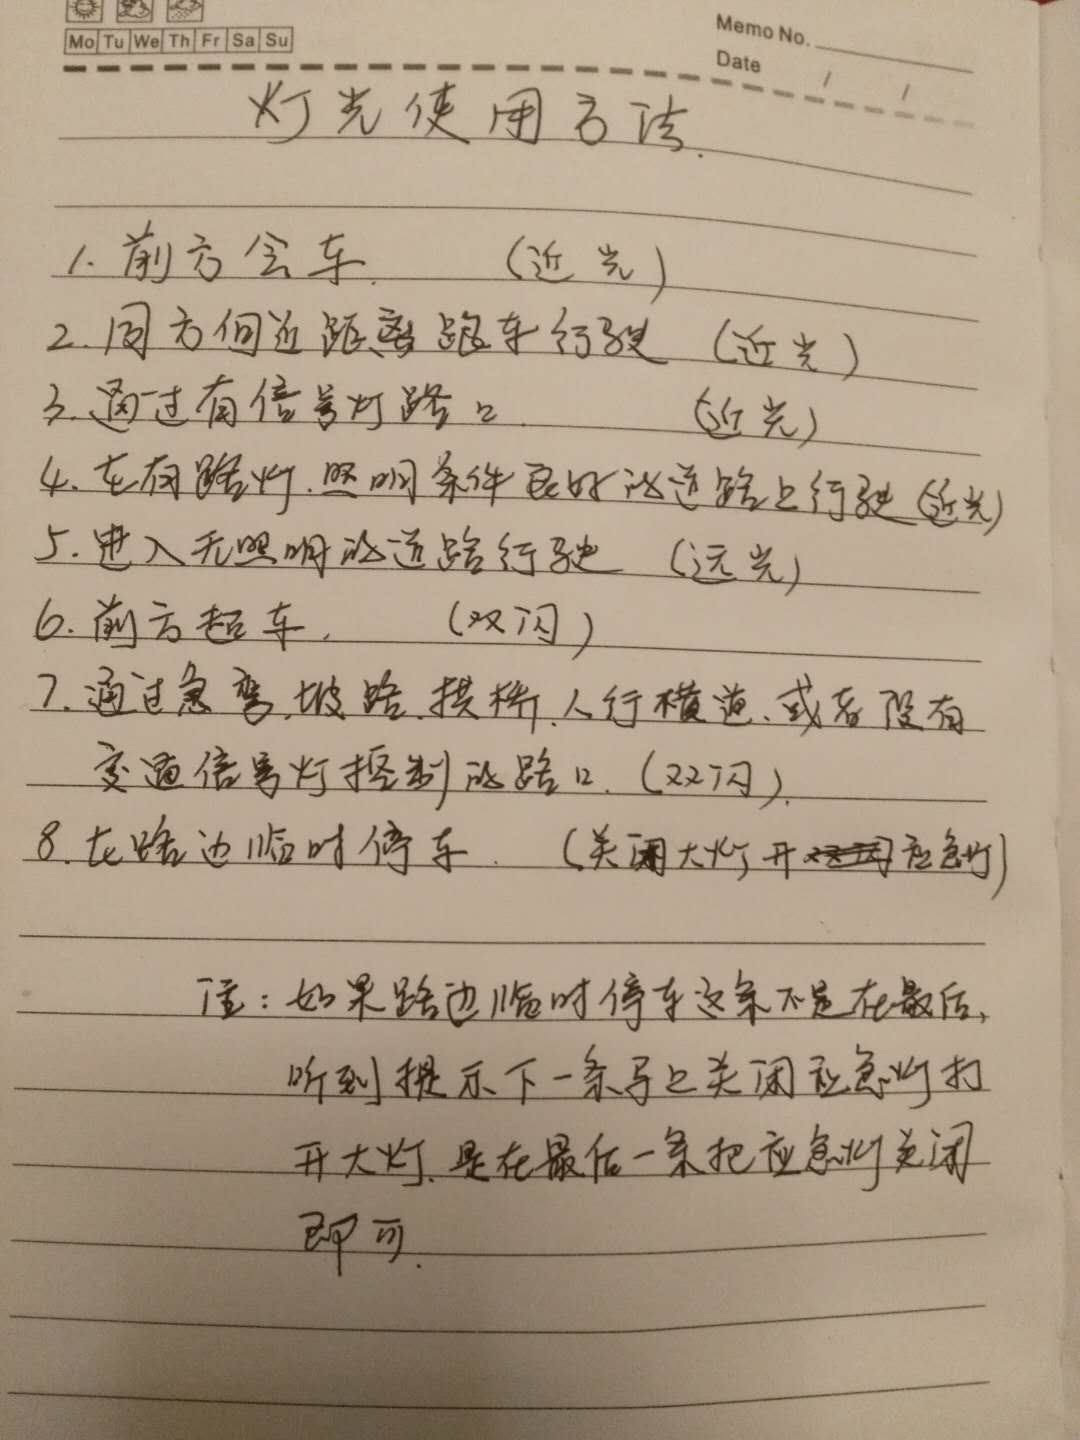 Mo Tu We Th Fr Sa Su
Memo No.
Date / /
灯光使用方法.
1. 前方会车. (近光)
2. 同方向近距离跟车行驶 (近光)
3. 通过有信号灯路口. (近光)
4. 在有路灯.照明条件良好的道路上行驶 (近光)
5. 进入无照明的道路行驶 (远光)
6. 前方超车. (双闪)
7. 通过急弯.坡路.拱桥.人行横道.或者没有
交通信号灯控制的路口. (双闪).
8. 在路边临时停车. (关闭大灯开应急灯)
注:如果路边临时停车这条不是在最后,
听到提示下一条马上关闭应急灯打
开大灯.是在最后一条把应急灯关闭
即可.